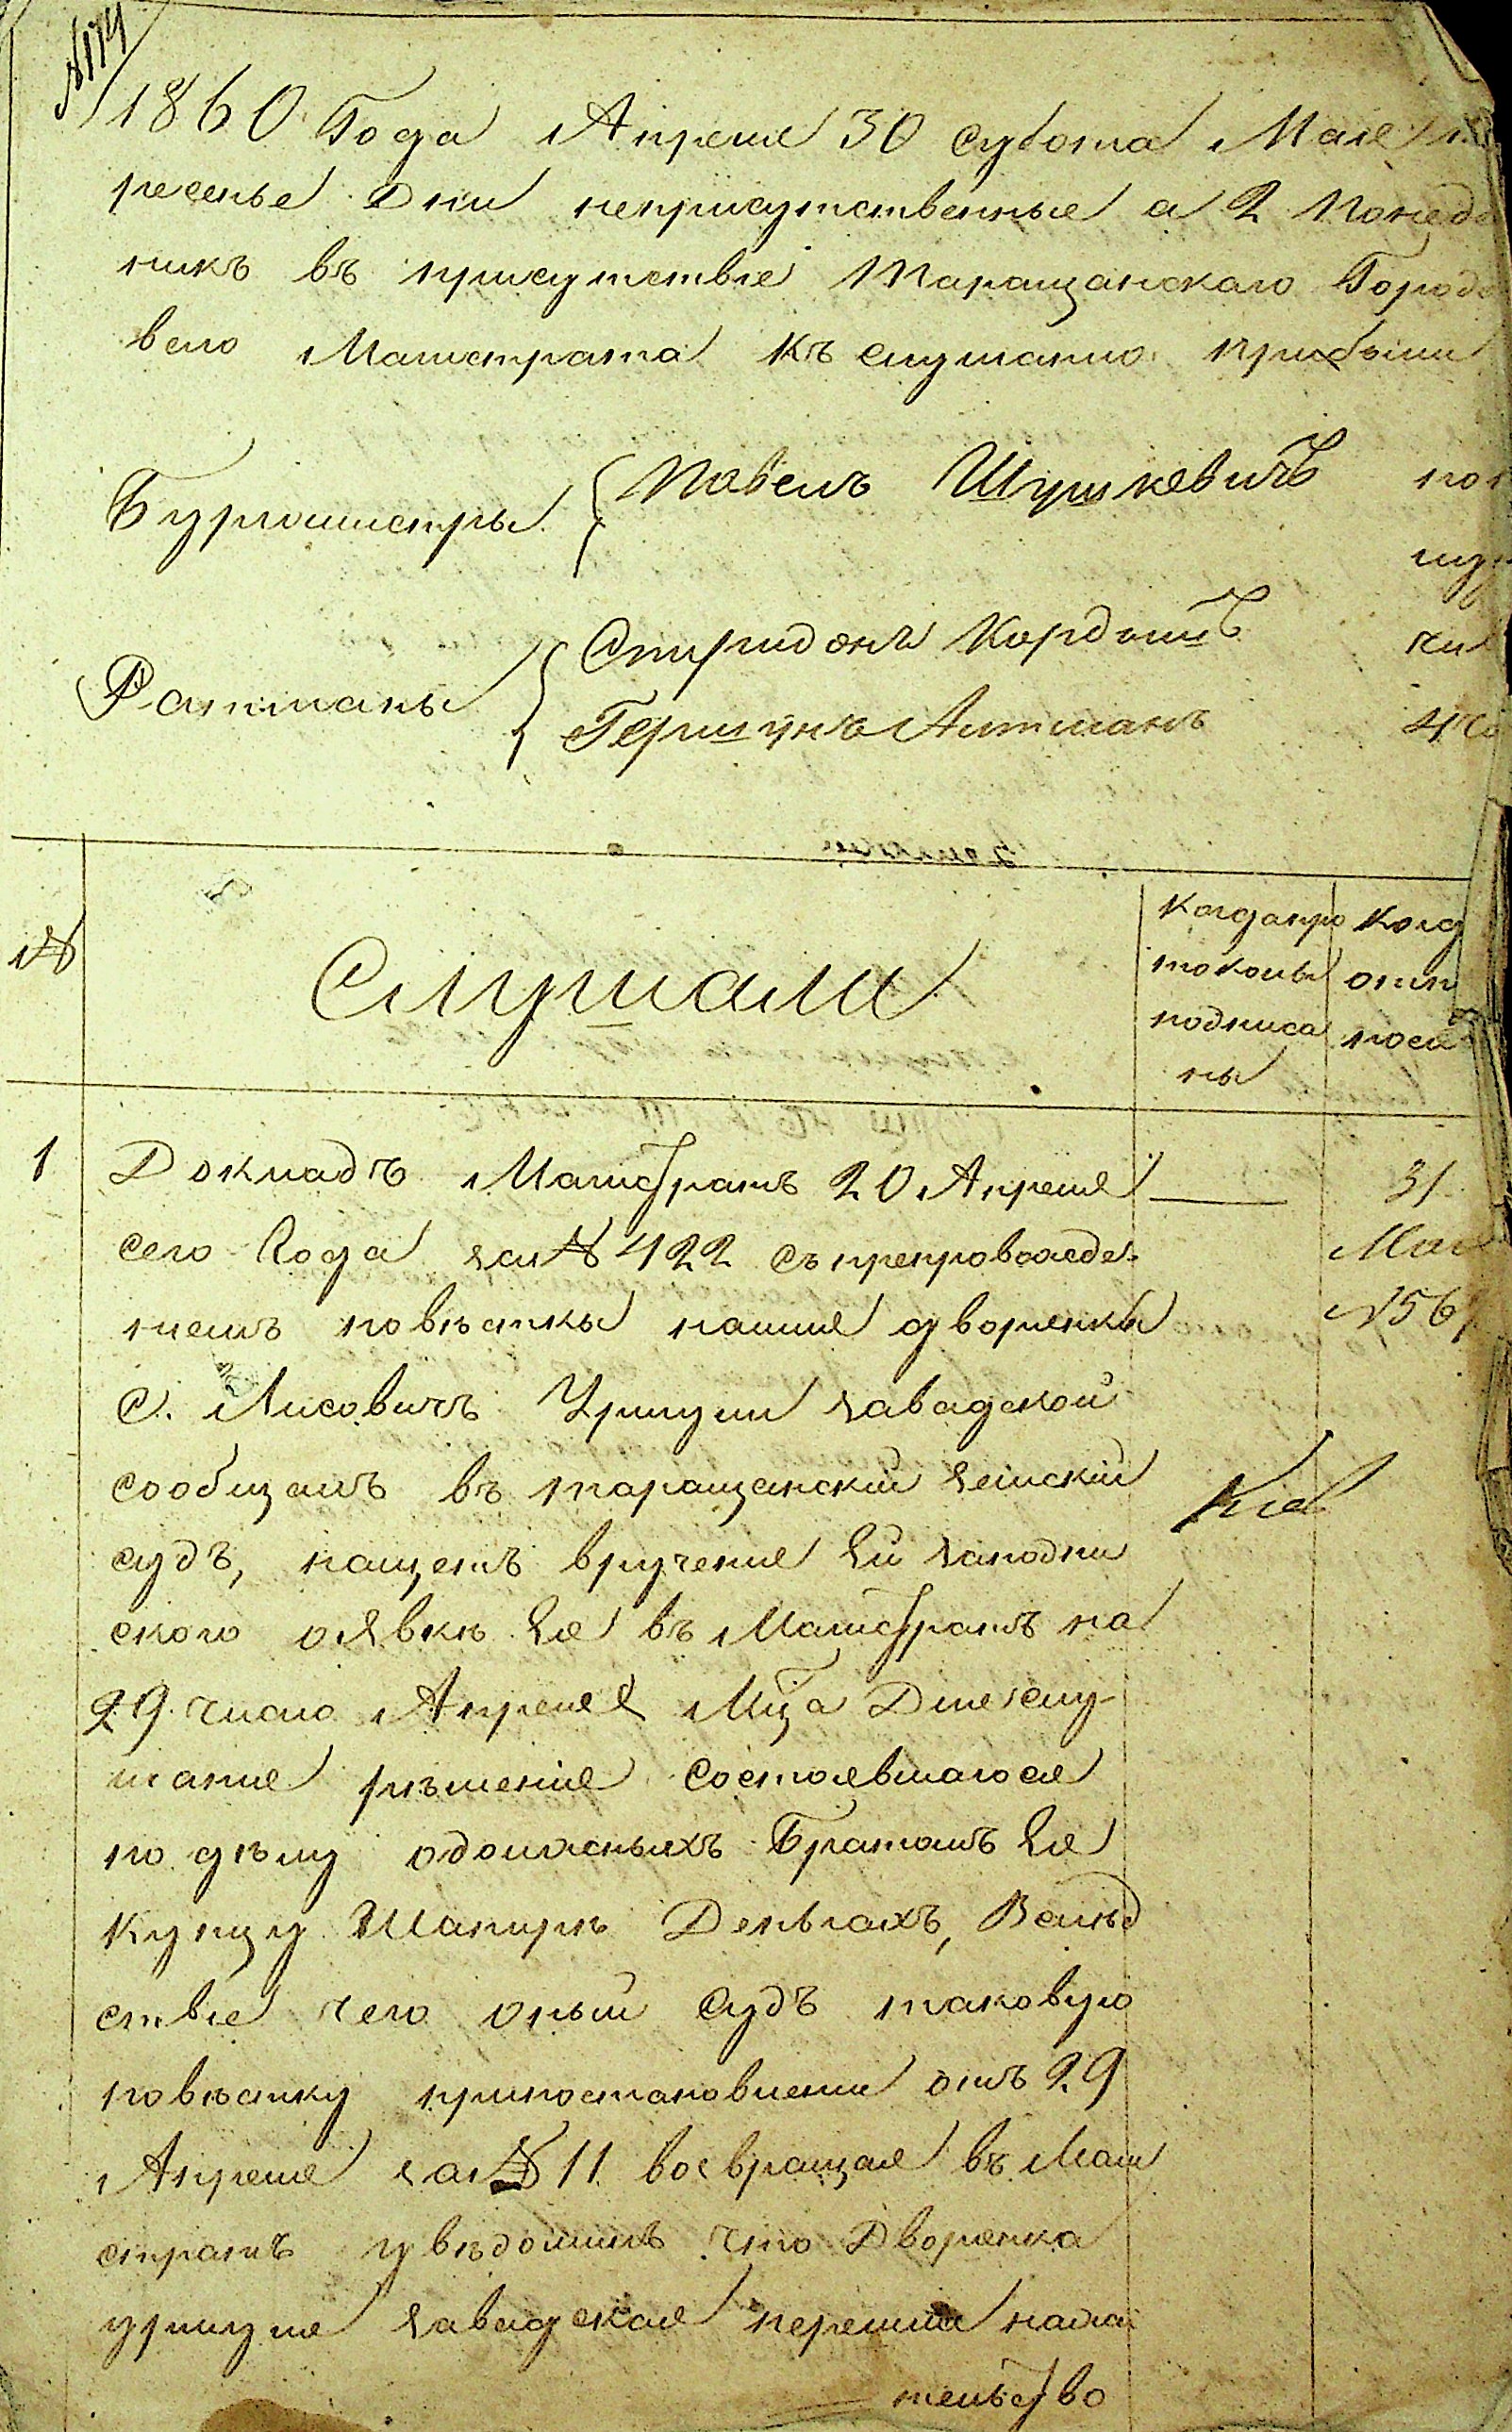 №174
1860 Года Апреля 30 субота Мая 1.
ресенье Дни неприсутственные а 2 Понедѣ
никъ въ присутствіе Таращанскаго Городо
ваго Магистрата къ слушанію прибыли
Бургомистры { Павелъ Шушкевичъ
Ратманы { Спиридонъ Кордышъ
Гершунъ Алтманъ
№ Слушали
Когда про
токолы
подписа
ны
Когд
отп
1 Докладъ Магистратъ 20 Апреля
сего Года за № 422 съ препровожде-
ніемъ повѣстки на имя дворянки
С. Лисовичъ Уршули Завадской
сообщалъ въ таращанскій Земскій
судъ, нащетъ врученія Ей заподпи
скою о явкѣ Ея въ Магистратъ на
29. число Апреля Мца Для слу-
шанія рѣшенія состоявшагося
по дѣлу одолжныхъ Братомъ Ея
купцу Шапирѣ Деньгахъ, Вслѣд
ствіе чего оный судъ таковую
повѣстку припостановленіи отъ 29
Апреля за № 11 возвращая въ Маги
стратъ увѣдомилъ что Дворянка
уршуля Завадская перешла нажи
тельство
31
Мая